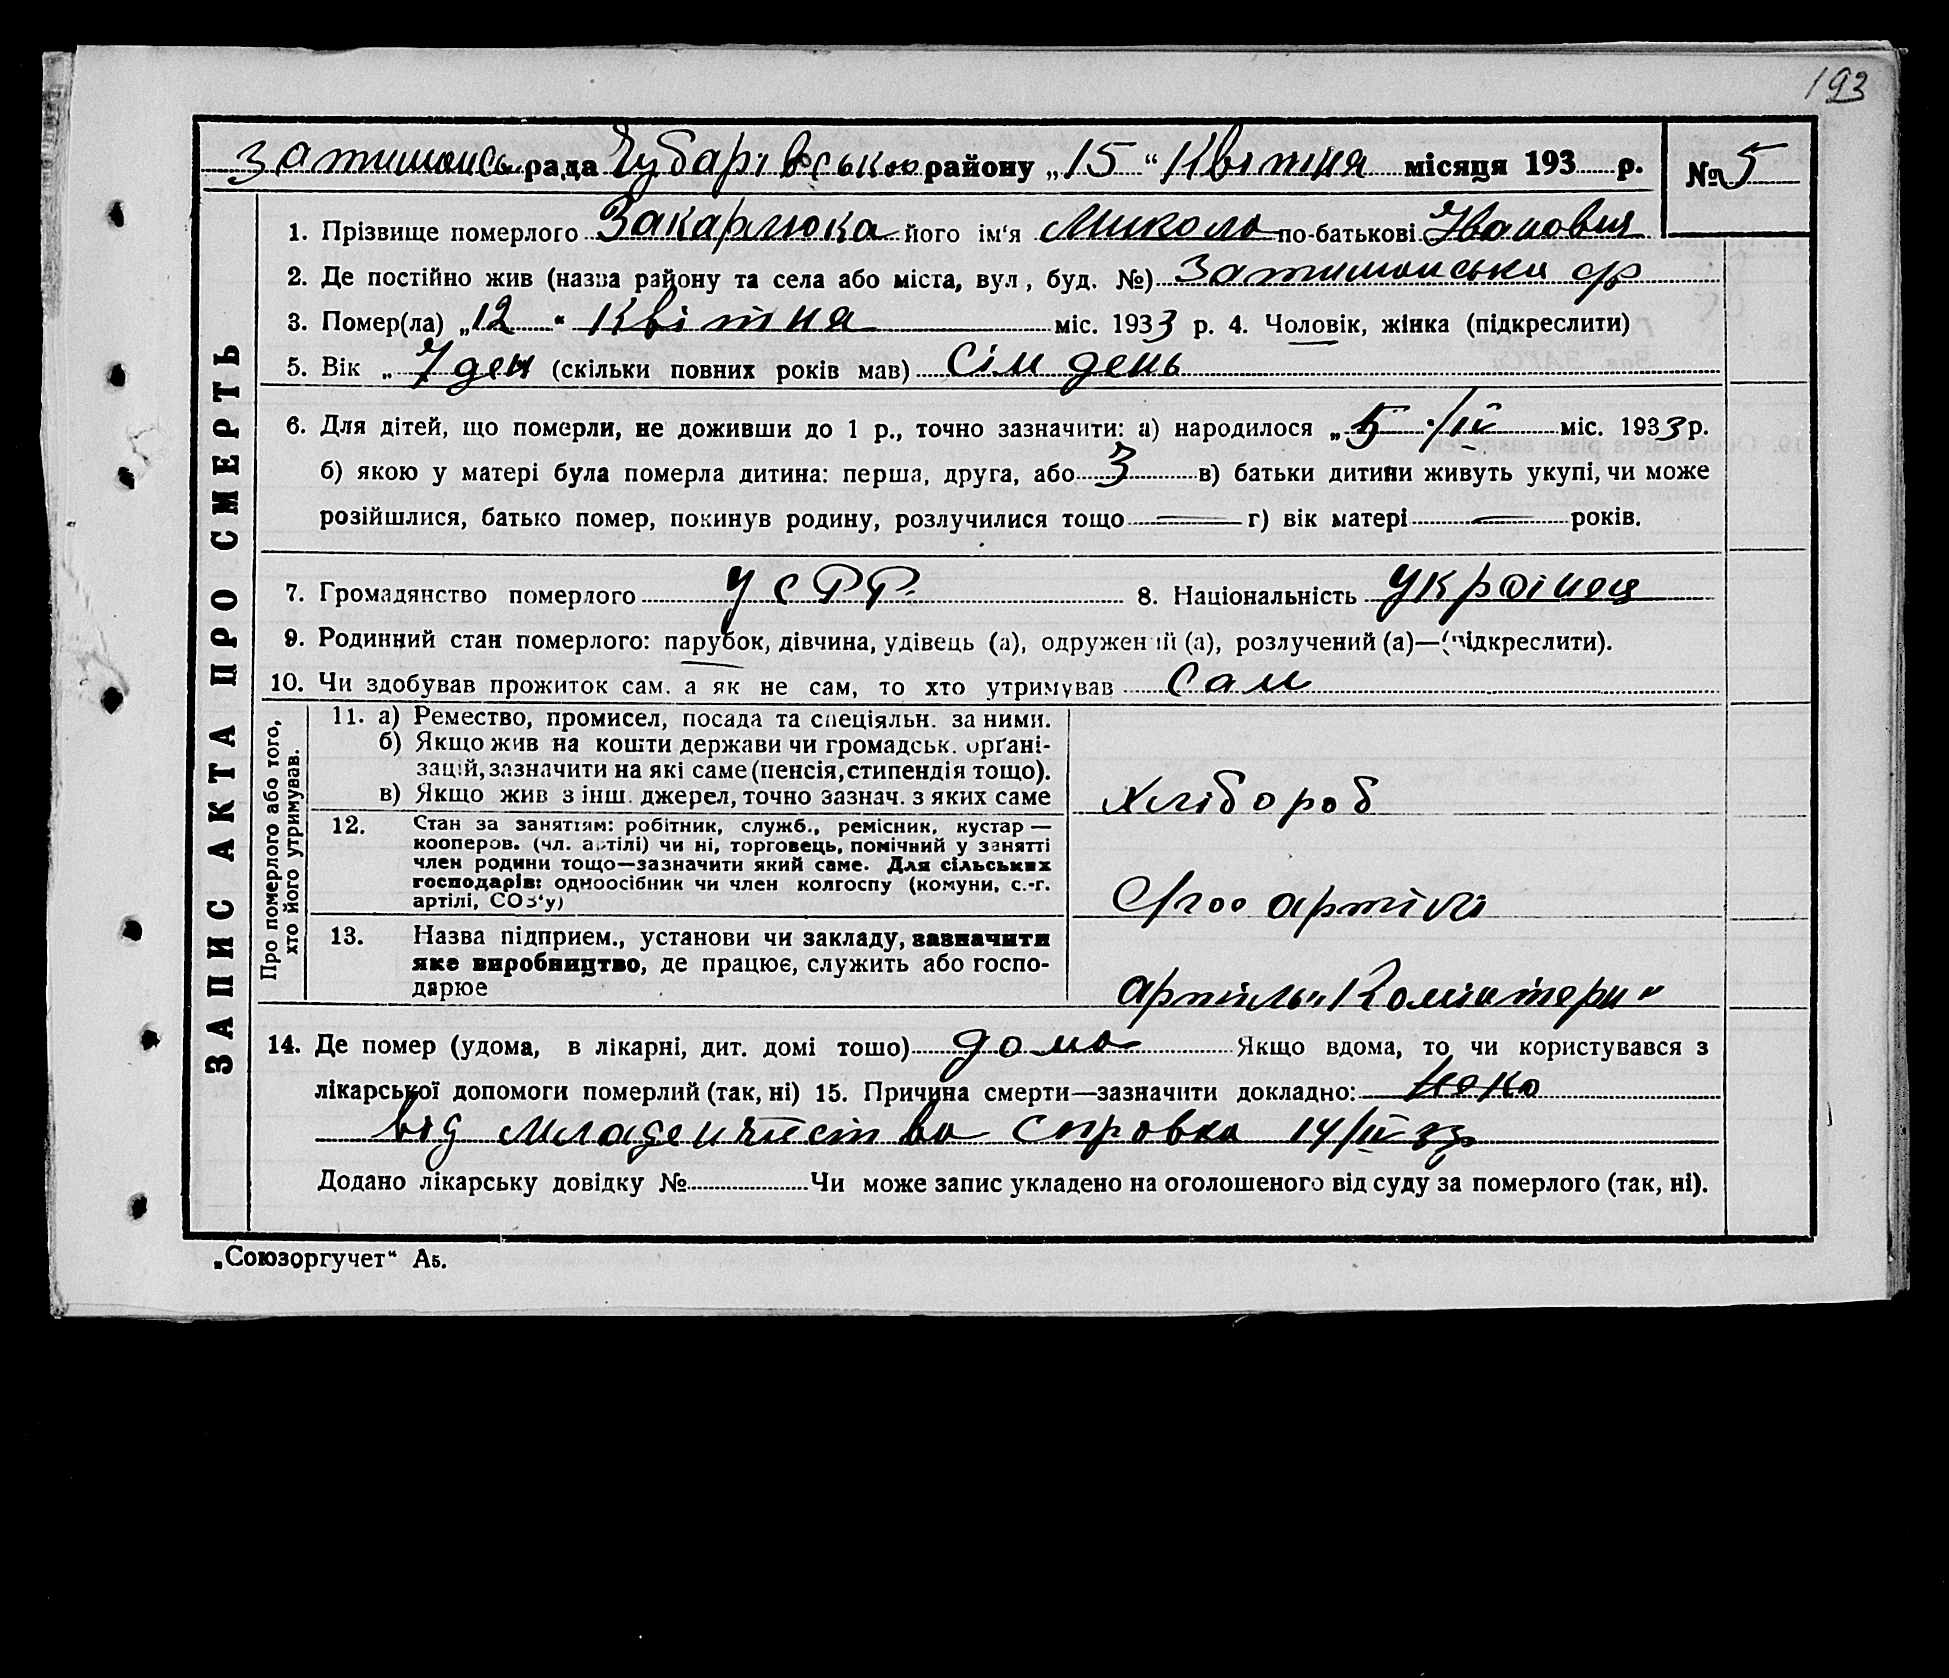 193
Затишанськ рада Чубарівського району „15“ Квітня місяця 193 р. № 5
ЗАПИС АКТА ПРО СМЕРТЬ
1. Прізвище померлого Закарлюка його ім'я Микола по-батькові Іванович
2. Де постійно жив (назва району та села або міста, вул., буд. №) Затишанська
3. Помер(ла) „12“ Квітня міс. 1933 р. 4. Чоловік, жінка (підкреслити)
5. Вік „ 7 ден (скільки повних років мав) Сім день
6. Для дітей, що померли, не доживши до 1 р., точно зазначити: а) народилося „5“/IV міс. 1933 р.
б) якою у матері була померла дитина: перша, друга, або 3 в) батьки дитини живуть укупі, чи може
розійшлися, батько помер, покинув родину, розлучилися тощо — г) вік матері — років.
7. Громадянство померлого УСРР. 8. Національність Українец
9. Родинний стан померлого: парубок, дівчина, удівець (а), одружений (а), розлучений (а)—(підкреслити).
10. Чи здобував прожиток сам, а як не сам, то хто утримував Сам
Про померлого або того,
хто його утримував.
11. а) Ремество, промисел, посада та спеціяльн. за ними.
б) Якщо жив на кошти держави чи громадськ. орґані-
зацій, зазначити на які саме (пенсія, стипендія тощо).
в) Якщо жив з інш. джерел, точно зазнач. з яких саме
Хлібороб
12. Стан за заняттям: робітник, служб., ремісник, кустар —
кооперов. (чл. артілі) чи ні, торговець, помічний у занятті
член родини тощо—зазначити який саме. Для сільських
господарів: одноосібник чи член колгоспу (комуни, с.-г.
артілі, СОЗ'у)
артілі
13. Назва підприєм., установи чи закладу, зазначити
яке виробництво, де працює, служить або госпо-
дарює
артіль „Комінтерн“
14. Де помер (удома, в лікарні, дит. домі тошо) дома Якщо вдома, то чи користувався з
лікарської допомоги померлий (так, ні) 15. Причина смерти—зазначити докладно:
від младенчиства справка 14/IV 33р
Додано лікарську довідку № Чи може запис укладено на оголошеного від суду за померлого (так, ні).
„Союзоргучет“ А5.